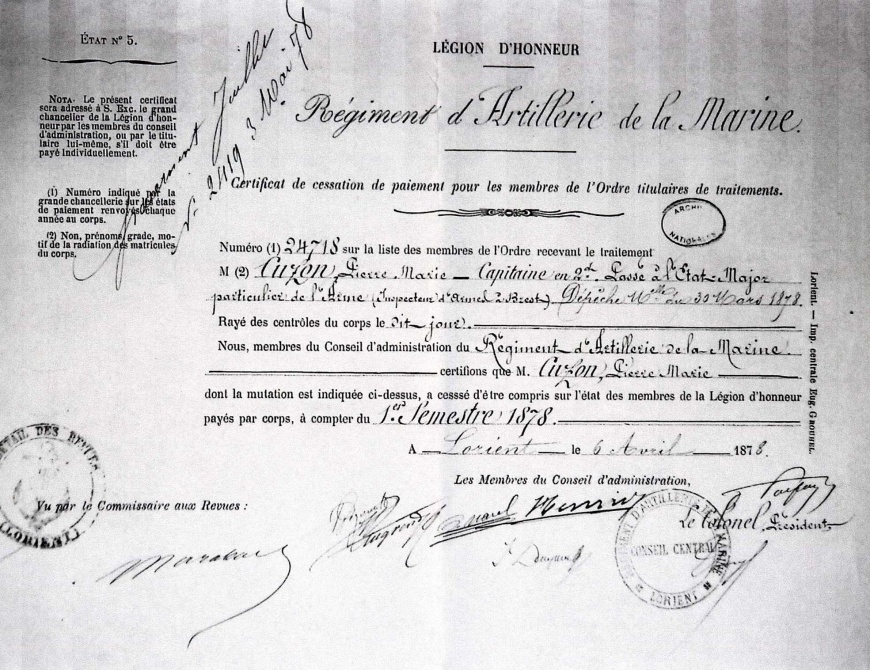 ÉTAT Nº 5.
LÉGION D'HONNEUR
Régiment d'Artillerie de la Marine.
NOTA. Le présent certificat
sera adressé à S. Exc. le grand
chancelier de la Légion d'hon-
neur par les membres du conseil
d'administration, ou par le titu-
laire lui-même, s'il doit être
payé individuellement.
(1) Numéro indiqué par la
grande chancellerie sur les états
de paiement renvoyés chaque
année au corps.
(2) Non, prénoms, grade, mo-
tif de la radiation des matricules
du corps.
Juillet
Nº 2419 3 Mai 78
Certificat de cessation de paiement pour les membres de l'Ordre titulaires de traitements.
ARCHIVES
NATIONALES
Numéro (1) 24718 sur la liste des membres de l'Ordre recevant le traitement
M (2) Cuzon, Pierre Marie — Capitaine en 2d. Passé à l'État-Major
particulier de l'Arme (Inspecteur d'armes à Brest) Dépêche Mlle du 30 Mars 1878.
Rayé des contrôles du corps le dit jour.
Nous, membres du Conseil d'administration du Régiment d'Artillerie de la Marine
certifions que M. Cuzon, Pierre Marie
dont la mutation est indiquée ci-dessus, a cesssé d'être compris sur l'état des membres de la Légion d'honneur
payés par corps, à compter du 1er Semestre 1878.
A Lorient le 6 Avril 1878.
Les Membres du Conseil d'administration,
Vu par le Commissaire aux Revues :
Le Colonel, Président
DÉTAIL DES REVUES
(LORIENT)
RÉGIMENT D'ARTILLERIE DE LA MARINE
CONSEIL CENTRAL
LORIENT
Lorient. — Imp. centrale Eug. GROUHEL.